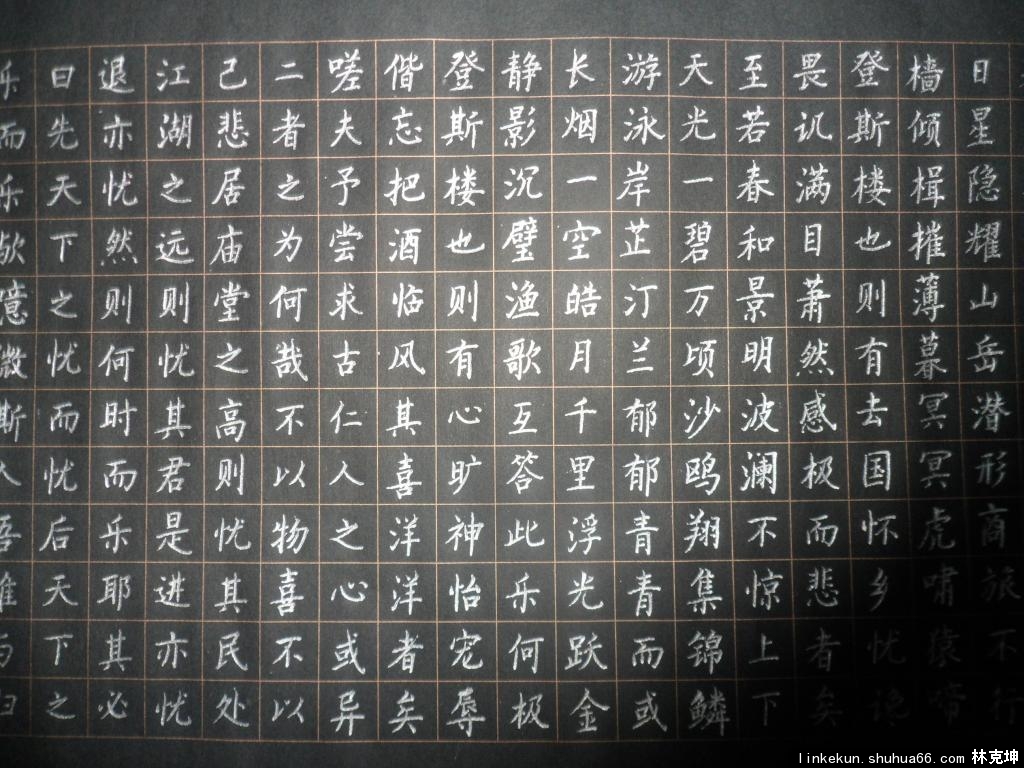 日星隐耀山岳潜形商旅不行
樯倾楫摧薄暮冥冥虎啸猿啼
登斯楼也则有去国怀乡忧谗
畏讥满目萧然感极而悲者矣
至若春和景明波澜不惊上下
天光一碧万顷沙鸥翔集锦鳞
游泳岸芷汀兰郁郁青青而或
长烟一空皓月千里浮光跃金
静影沉璧渔歌互答此乐何极
登斯楼也则有心旷神怡宠辱
偕忘把酒临风其喜洋洋者矣
嗟夫予尝求古仁人之心或异
二者之为何哉不以物喜不以
己悲居庙堂之高则忧其民处
江湖之远则忧其君是进亦忧
退亦忧然则何时而乐耶其必
曰先天下之忧而忧后天下之
乐而乐欤噫微斯人吾谁与归
linkekun.shuhua66.com 林克坤